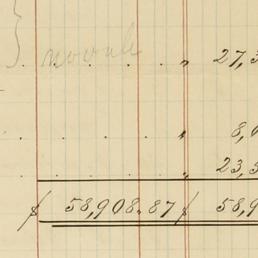 27,3
8,
23,3
$ 58,908.87 $ 58,9